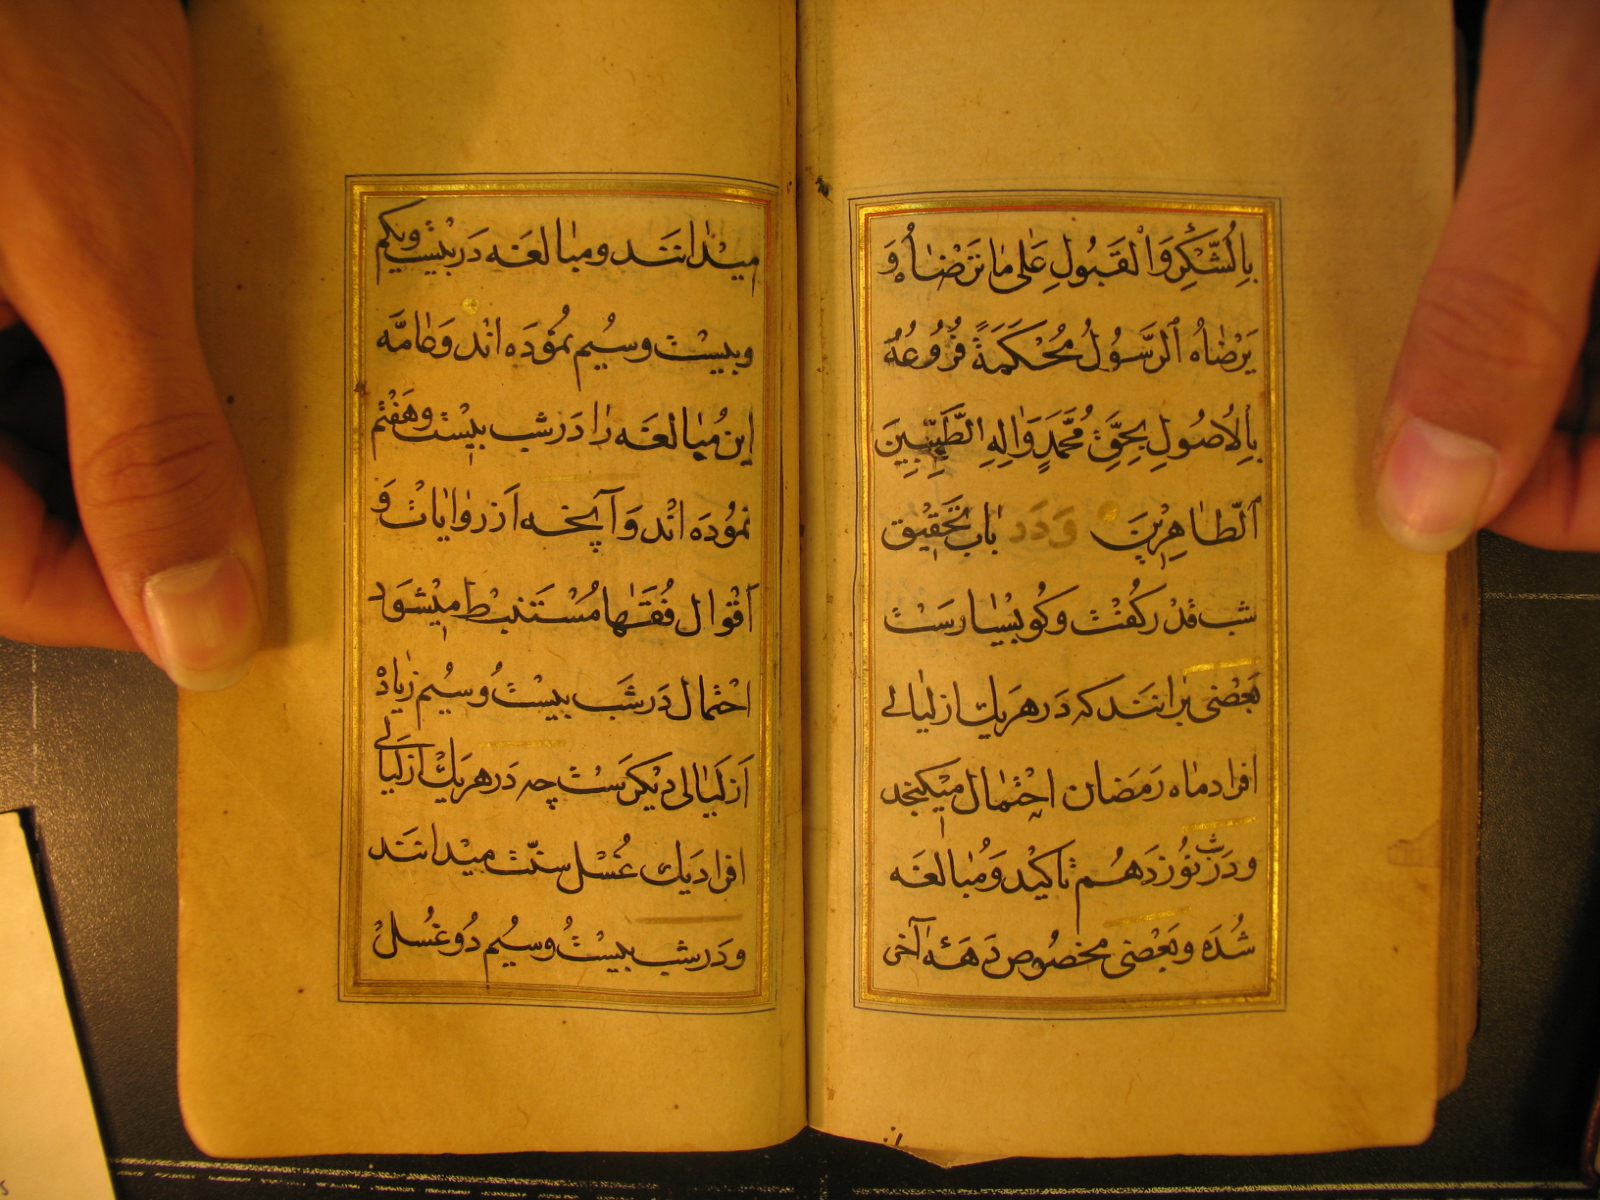 بِالشُّكْرِ وَالْقَبُولِ عَلٰى مٰا تَرْضٰاهُ وَ
يَرْضٰاهُ الرَّسُولُ مُحْكَمَةً فُرُوعُهُ
بِالْاُصُولِ بِحَقِّ مُحَمَّدٍ وَاٰلِهِ الطَّيِّبِينَ
الطّٰاهِرِينَ وَدَر بٰاب تَحْقِيْق
شب قَدْر كُفْتْ وَكُو بِسْيٰار سَتْ
بَعْضى بَرانَنَد كه دَر هَر يك از ليٰالے
افراد مٰاه رَمَضان احْتمٰال مَيْكنجد
ودَر شب نوُزدَهُم تٰاكيْد وَمُبٰالغَه
شُدَه وبَعْضى مخصُوص دَهَهٔ آخر
ميْدٰانَنَد ومبٰالغَه دَر بيْسْت ويكم
وبيسْت وسيُم نموُدَه انْد وَعٰامَّه
اين مُبٰالغَه رٰا دَر شب بيسْت وهَفْتم
نموُدَه انْد وَآنچه اَز رِوٰايٰاتْ وَ
اَقْوال فُقَهٰا مُسْتَنبطْ ميْشوَد
احْتمٰال دَر شَب بيسْتُ وسيُم زيٰادْ
اَز لَيٰالى ديْكرَسْتْ چه دَر هر يَكْ از ليَالے
افراد يَك غُسْل سنّتْ ميْدانَنَد
ودَر شب بيسْتُ وسيُم دُو غُسلْ